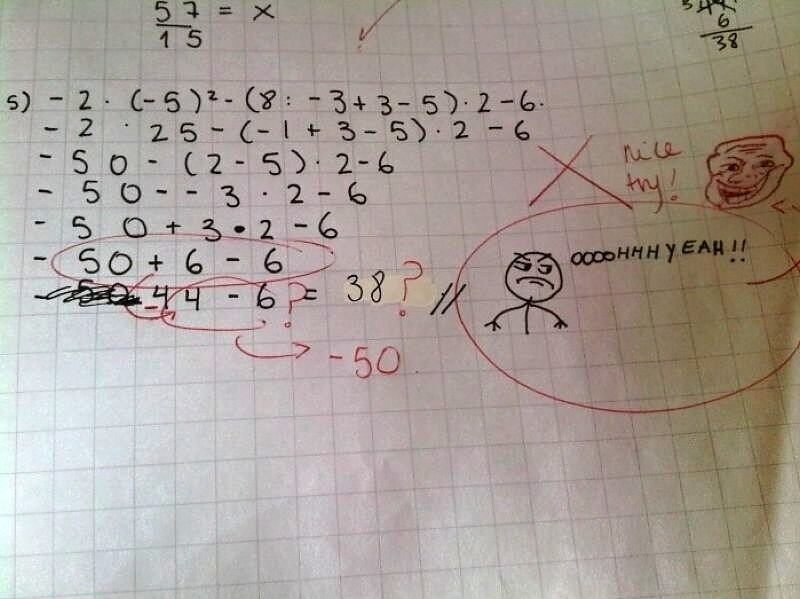 57 = x
15
44.
6
38
5) - 2 · (-5)² - (8 : -3 + 3 - 5) · 2 - 6.
- 2 · 25 - (-1 + 3 - 5) · 2 - 6
- 50 - (2 - 5) · 2 - 6
- 50 - - 3 · 2 - 6
- 50 + 3 · 2 - 6
- 50 + 6 - 6
- 44 - 6 ? = 38 ? //
- 50.
nice
try!
OOOOHHHYEAH!!